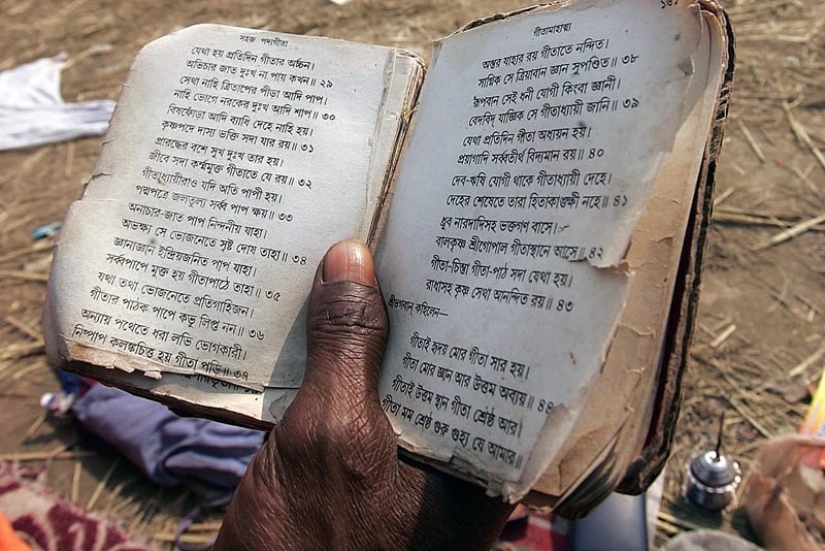 সহজ পদ্যগীতা
যেথা হয় প্রতিদিন গীতার অর্চ্চন।
অভিচার জাত দুঃখ না পায় কখন॥ ২৯
সেথা নাহি ত্রিতাপের পীড়া আদি পাপ।
নাহি ভোগে নরকের দুঃখ আদি শাপ॥ ৩০
বিষফোঁড়া আদি ব্যাধি দেহে নাহি হয়।
কৃষ্ণপদে দাস্য ভক্তি সদা যার রয়॥ ৩১
প্রারব্ধের বশে সুখ দুঃখ তার হয়।
জীবে সদা কর্ম্মমুক্ত গীতাতে যে রয়॥ ৩২
গীতাধ্যায়ীরাও যদি অতি পাপী হয়।
পদ্মপত্রে জলতুল্য সর্ব্ব পাপ ক্ষয়॥ ৩৩
অনাচার-জাত পাপ নিন্দনীয় যাহা।
অভক্ষ্য সে ভোজনেতে সৃষ্ট দোষ তাহা॥ ৩৪
জ্ঞানাজ্ঞান ইন্দ্রিয়জনিত পাপ যাহা।
সর্ব্বপাপে মুক্ত হয় গীতাপাঠে তাহা॥ ৩৫
যথা তথা ভোজনেতে প্রতিগ্রাহিজন।
গীতার পাঠক পাপে কভু লিপ্ত নন॥ ৩৬
অন্যায় পথেতে ধরা লভি ভোগকারী।
নিষ্পাপ কলঙ্কচিত্ত হয় গীতা পড়ি॥ ৩৭
গীতামাহাত্ম্য
অন্তর যাহার রয় গীতাতে নন্দিত।
সাগ্নিক সে ক্রিয়াবান জ্ঞান সুপণ্ডিত॥ ৩৮
রূপবান সেই ধনী যোগী কিংবা জ্ঞানী।
বেদবিদ্ যাজ্ঞিক সে গীতাধ্যায়ী জানি॥ ৩৯
যেথা প্রতিদিন গীতা অধ্যয়ন হয়।
প্রয়াগাদি সর্ব্বতীর্থ বিদ্যমান রয়॥ ৪০
দেব-ঋষি যোগী থাকে গীতাধ্যায়ী দেহে।
দেহের শেষেতে তারা হিতাকাঙ্ক্ষী নহে॥ ৪১
ধ্রুব নারদাদিসহ ভক্তগণ বাসে।
বালকৃষ্ণ শ্রীগোপাল গীতাস্থানে আসে॥ ৪২
গীতা-চিন্তা গীতা-পাঠ সদা যেথা হয়।
রাধাসহ কৃষ্ণ সেথা আনন্দিত রয়॥ ৪৩
শ্রীভগবান্ কহিলেন—
গীতাই হৃদয় মোর গীতা সার হয়।
গীতা মোর জ্ঞান আর উত্তম অব্যয়॥ ৪৪
গীতাই উত্তম স্থান গীতা শ্রেষ্ঠ আর।
গীতা মম শ্রেষ্ঠ গুরু গুহ্য যে আমার॥